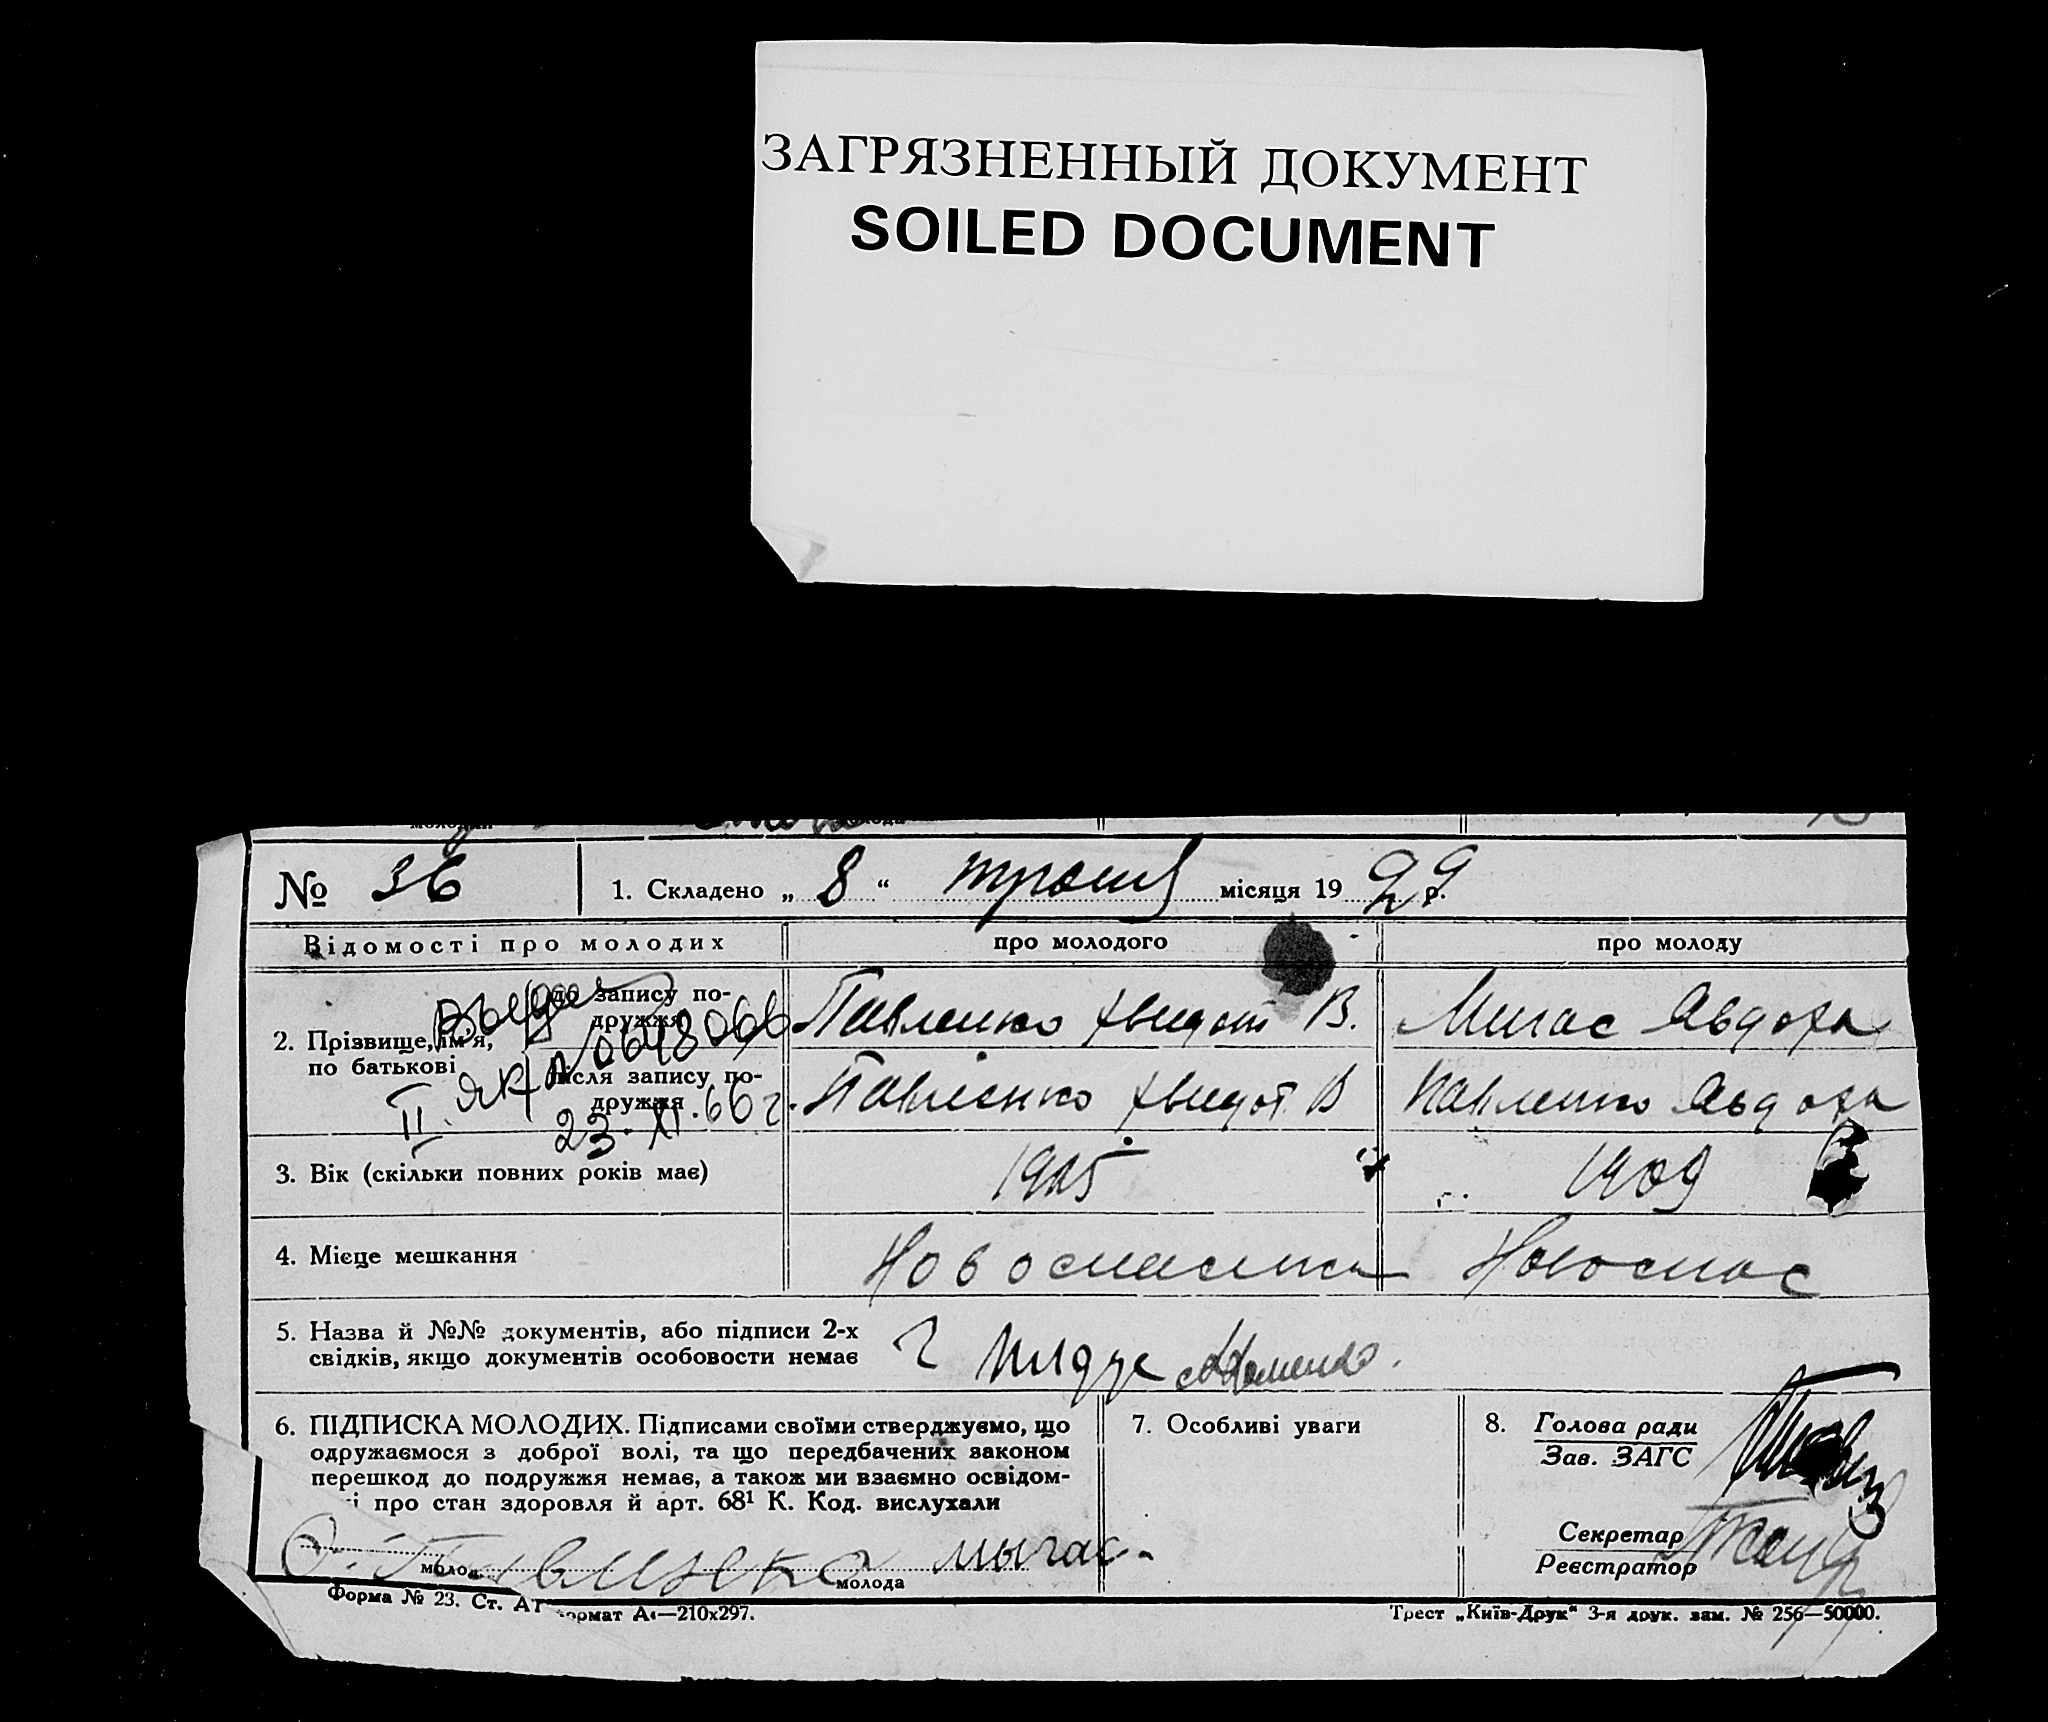 ЗАГРЯЗНЕННЫЙ ДОКУМЕНТ
SOILED DOCUMENT
№ 36 1. Складено „ 8 “ травня місяця 1929 р.
Відомості про молодих про молодого про молоду
2. Прізвище, ім'я, по батькові
до запису подружжя Павленко Хведот В. Мигас Явдоха
після запису подружжя Павленко Хведот В Павленко Явдоха
II ЯК № 0648066
23.XI.66 г.
3. Вік (скільки повних років має) 1905 1909
4. Місце мешкання Новоспаська Новоспас
5. Назва й №№ документів, або підписи 2-х
свідків, якщо документів особовости немає
6. ПІДПИСКА МОЛОДИХ. Підписами своїми стверджуємо, що 7. Особливі уваги 8. Голова ради
одружаємося з доброї волі, та що передбачених законом Зав. ЗАГС
перешкод до подружжя немає, а також ми взаємно освідом-
про стан здоровля й арт. 68¹ К. Код. вислухали
Секретар
Реєстратор
Павленко мигас
молод молода
Форма № 23. Ст. АТ формат А4—210х297. Трест „Київ-Друк“ 3-я друк. зам. № 256—50000.